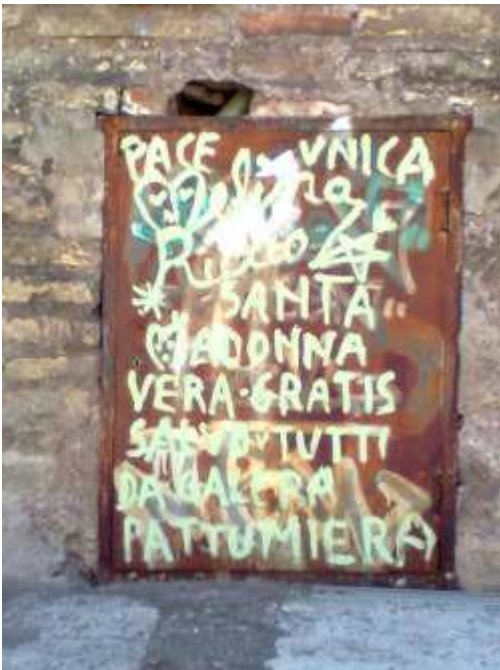 PACE VNICA
Melina
Riccio
SANTA
MADONNA
VERA·GRATIS
SALVO·TUTTI
DA GALERA
PATTUMIERA